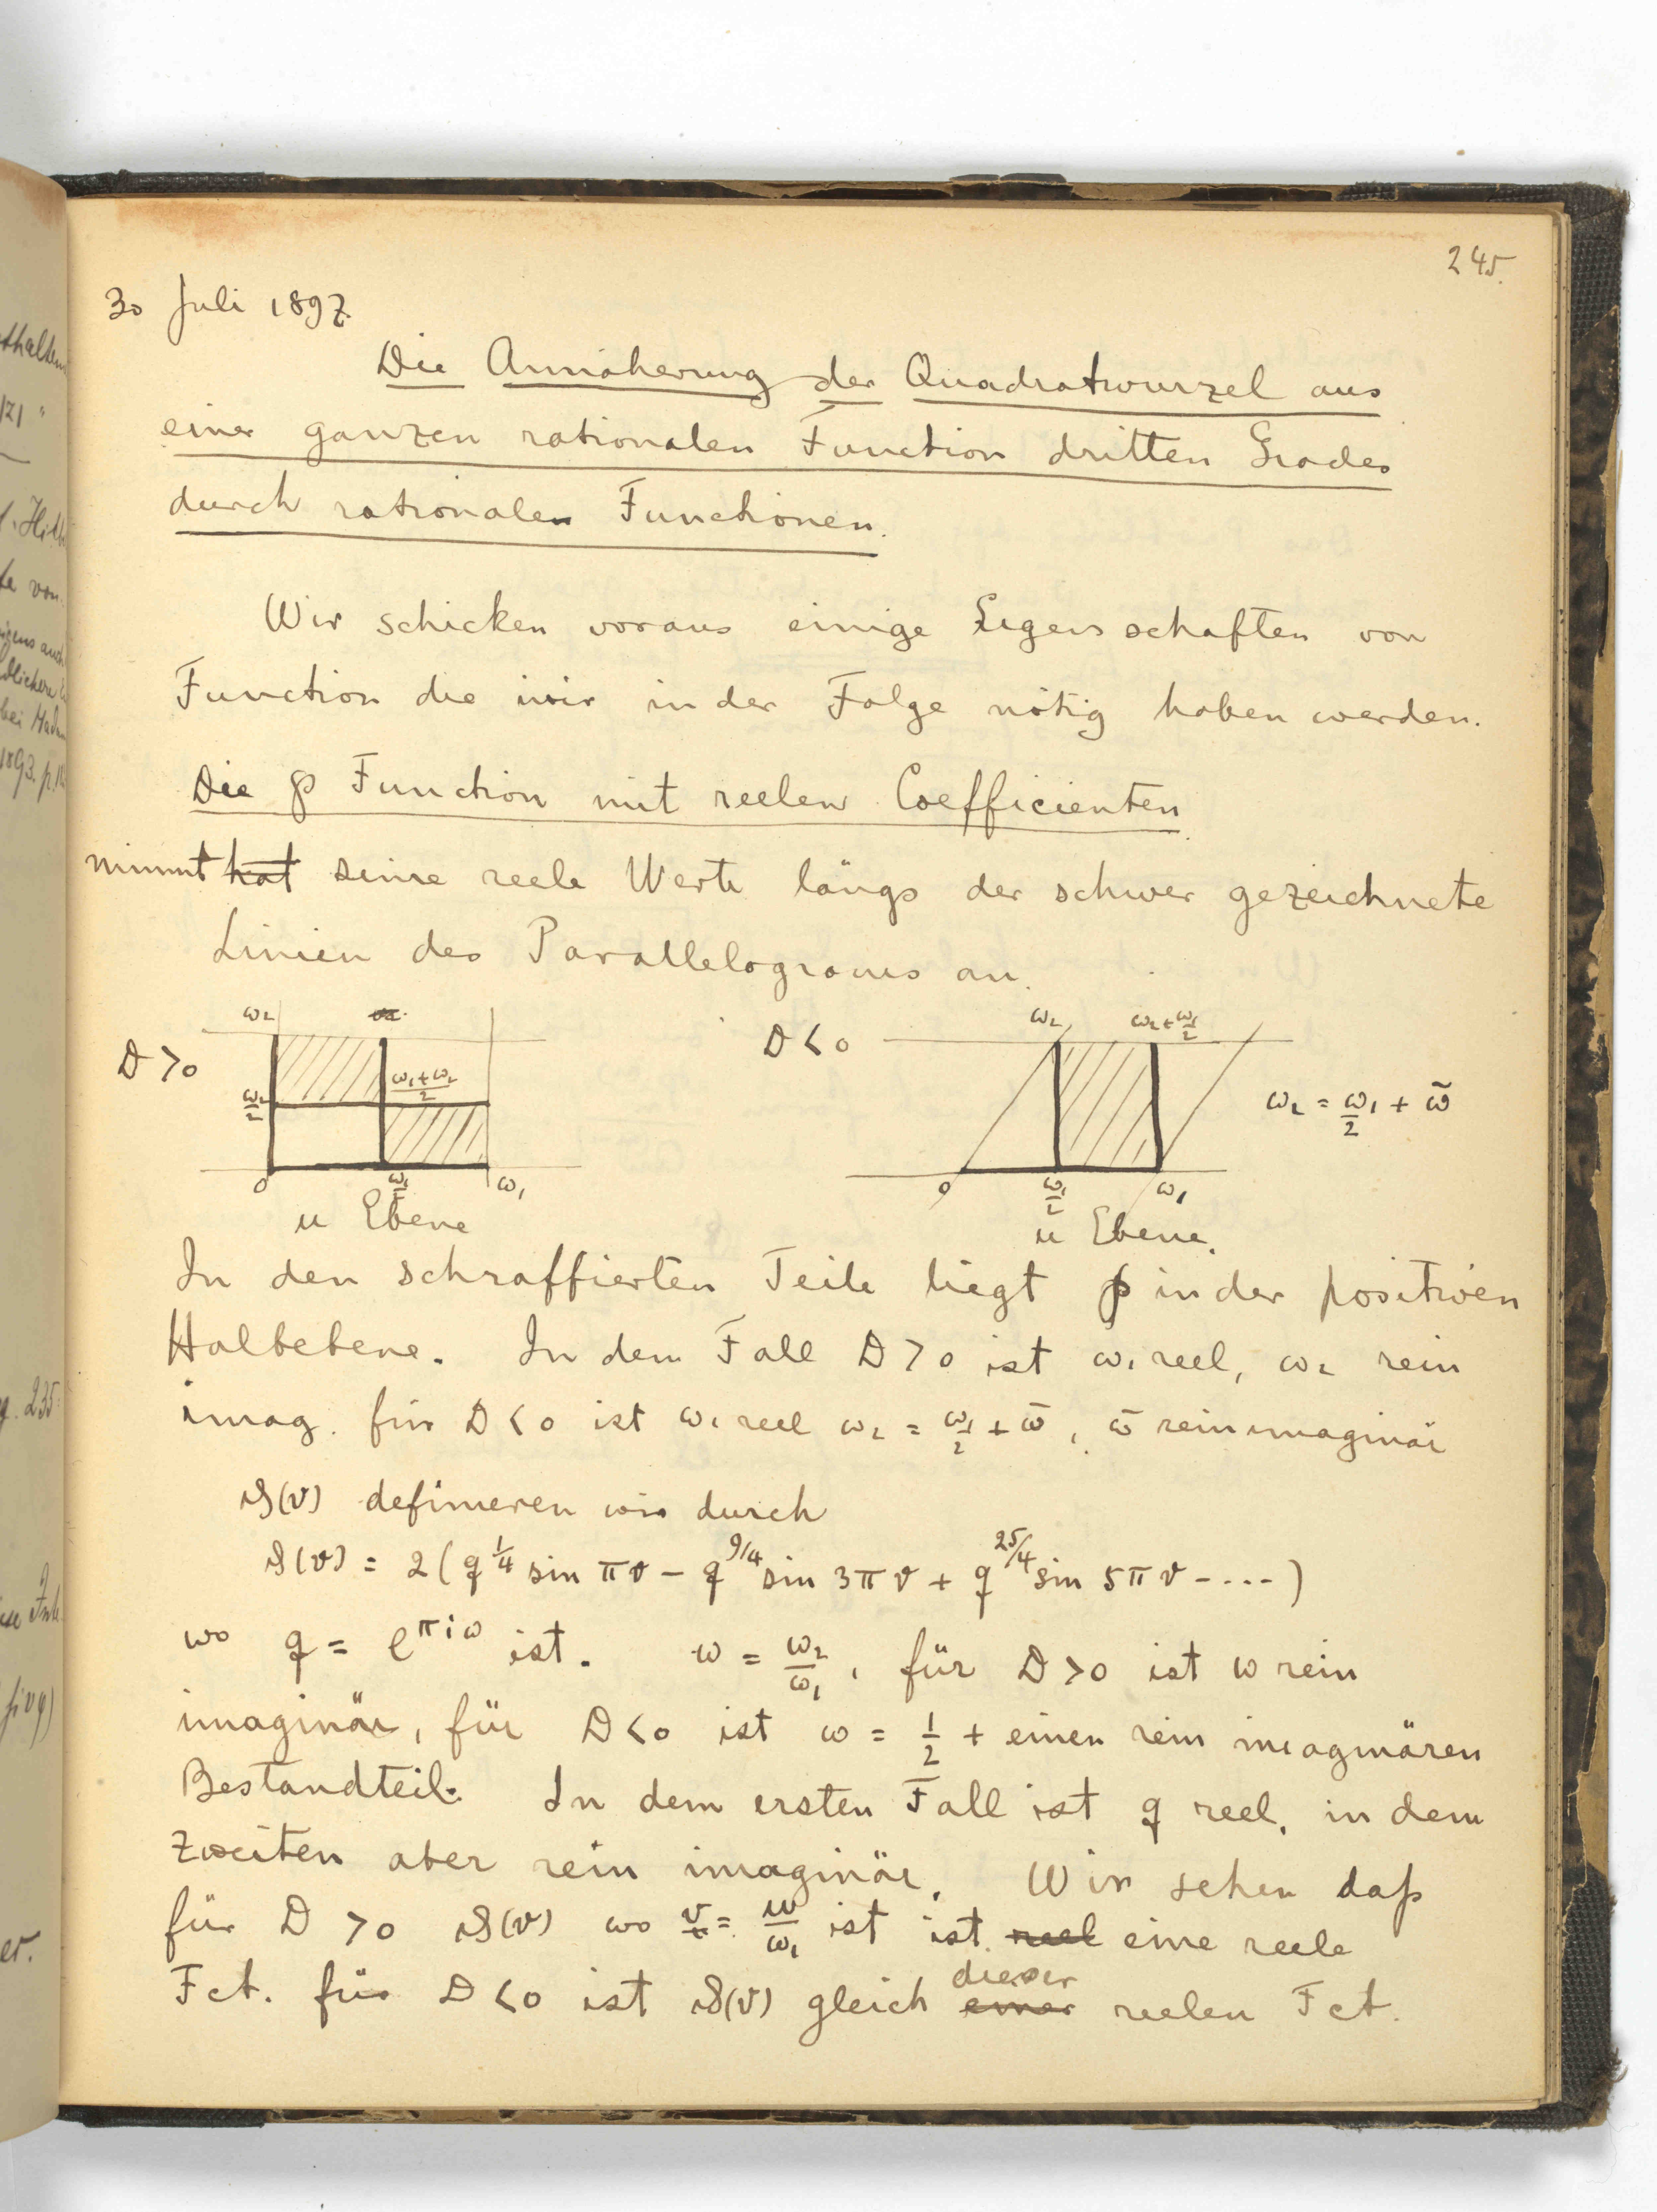 245.
30 Juli 1897.
Die Annäherung der Quadratwurzel aus
einer ganzen rationalen Function dritten Grades
durch rationalen Functionen.
Wir schicken voraus einige Eigenschaften von
Function die wir in der Folge nötig haben werden.
Die ℘ Function mit reelen Coefficienten
nimmt hat seine reele Werte längs der schwer gezeichnete
Linien des Parallelograms an.
D > 0
ω₂
ω₂/2
(ω₁+ω₂)/2
0
ω₁/2
ω₁
u Ebene
D < 0
ω₂
ω₂+ω₁/2
0
ω₁/2
ω₁
u Ebene.
ω₂ = ω₁/2 + ω̃
In den schraffierten Teile liegt ℘ in der positiven
Halbebene. In dem Fall D > 0 ist ω₁ reel, ω₂ rein
imag. für D < 0 ist ω₁ reel ω₂ = ω₁/2 + ω̄, ω̄ rein imaginär
ϑ(v) definieren wir durch
ϑ(v) = 2(q^{1/4} sin πv − q^{9/4} sin 3πv + q^{25/4} sin 5πv − ....)
wo q = e^{πiω} ist. ω = ω₂/ω₁, für D > 0 ist ω rein
imaginär, für D < 0 ist ω = 1/2 + einen rein imaginären
Bestandteil. In dem ersten Fall ist q reel, in dem
zweiten aber rein imaginär. Wir sehen daß
für D > 0 ϑ(v) wo v = u/ω₁ ist ist reel eine reele
Fct. für D < 0 ist ϑ(v) gleich einer dieser reelen Fct.
thalten
/z/ "
te von
bei Hada
1893. p.
235
er.